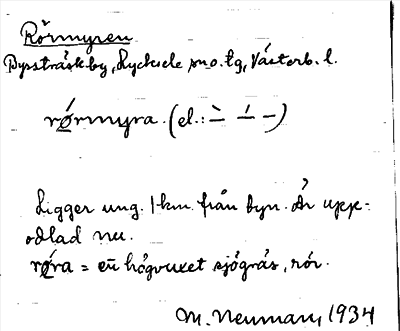 Rörmyren
Bysträsk by, Lycksele sn o. tg, Västerb. l.
rø̀rmyra. (el.: – – –)
Ligger ung. 1 km. från byn. Är upp-
odlad nu.
rø̀ra = eñ högvuxet sjögräs, rör.
M. Neuman, 1934